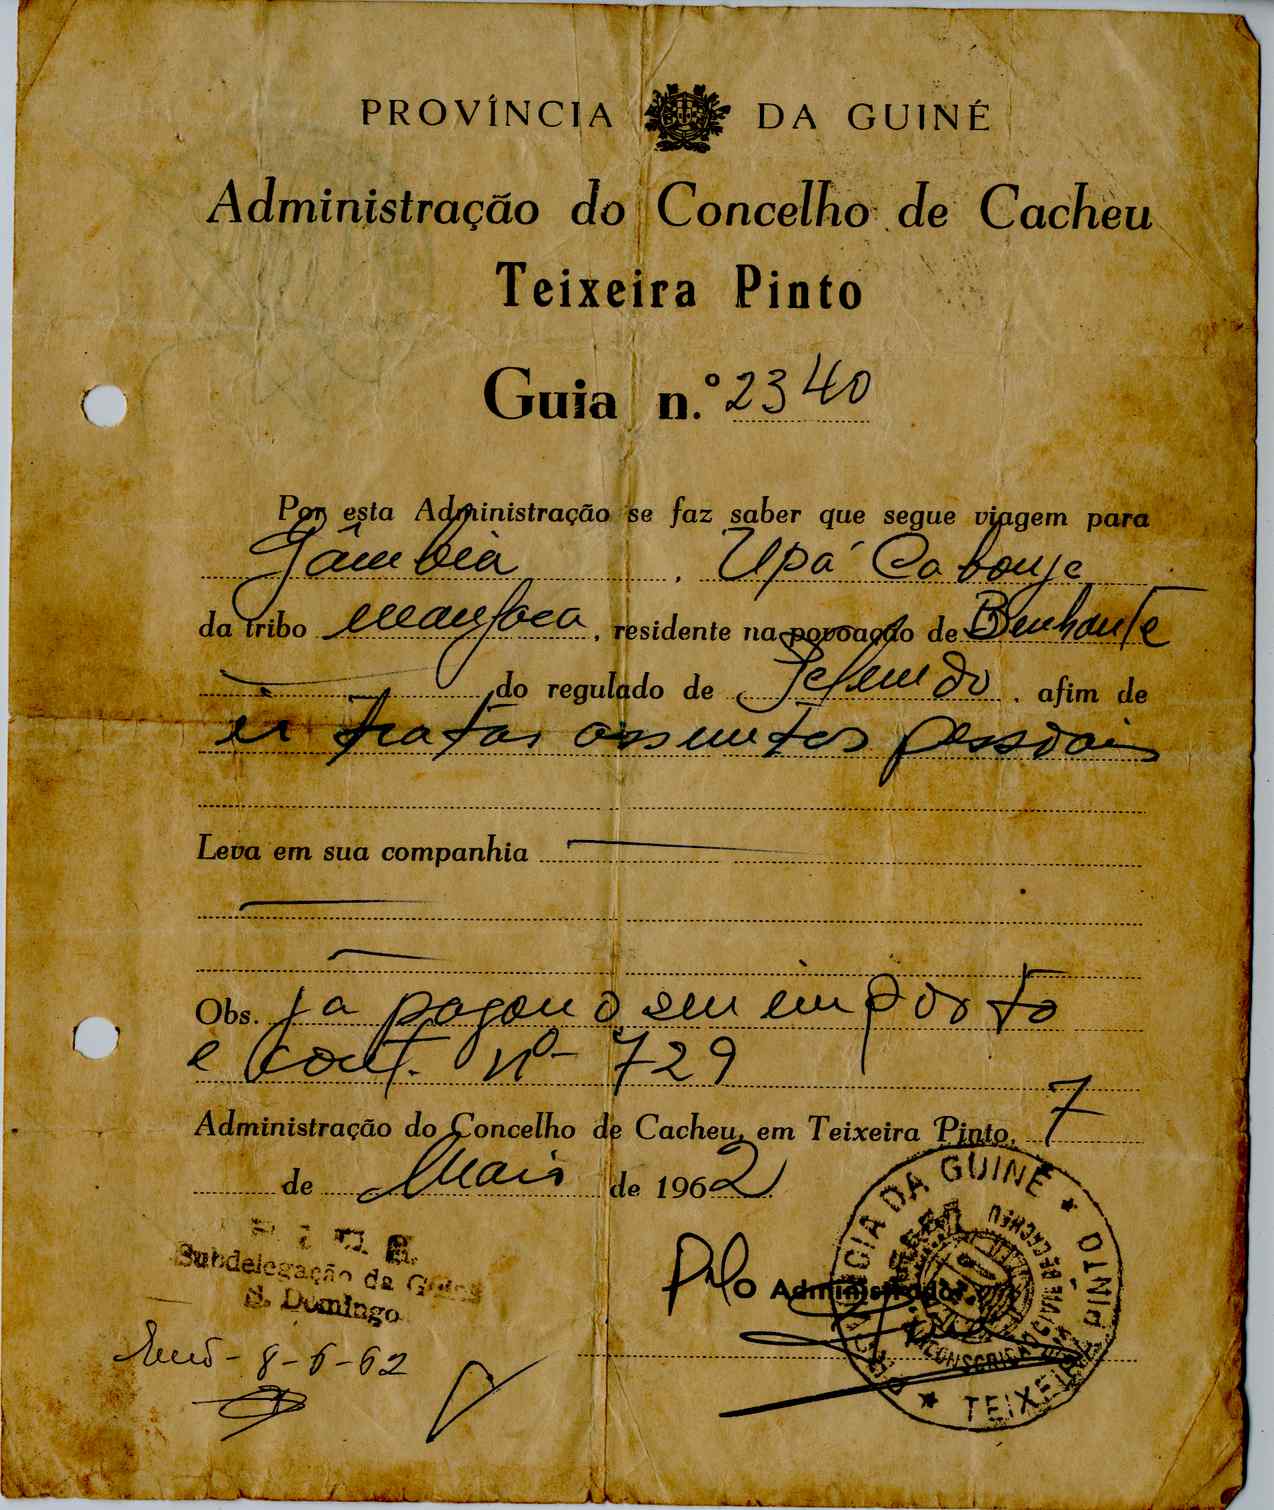 PROVÍNCIA DA GUINÉ
Administração do Concelho de Cacheu
Teixeira Pinto
Guia n.º 2340
Por esta Administração se faz saber que segue viagem para
Gâmbia, Upá Cabouje
da tribo manjaca, residente na povoação de Benhante
do regulado de , afim de
ir tratar assuntos pessoais
Leva em sua companhia
Obs. já pagou o seu imposto
e cont. nº 729
Administração do Concelho de Cacheu, em Teixeira Pinto, 7
de Maio de 1962
Pelo Administrador,
PROVÍNCIA DA GUINÉ * TEIXEIRA PINTO *
CIRCUNSCRIÇÃO CIVIL DE CACHEU
P. I. D. E.
Subdelegação da Guiné
S. Domingo
8-6-62